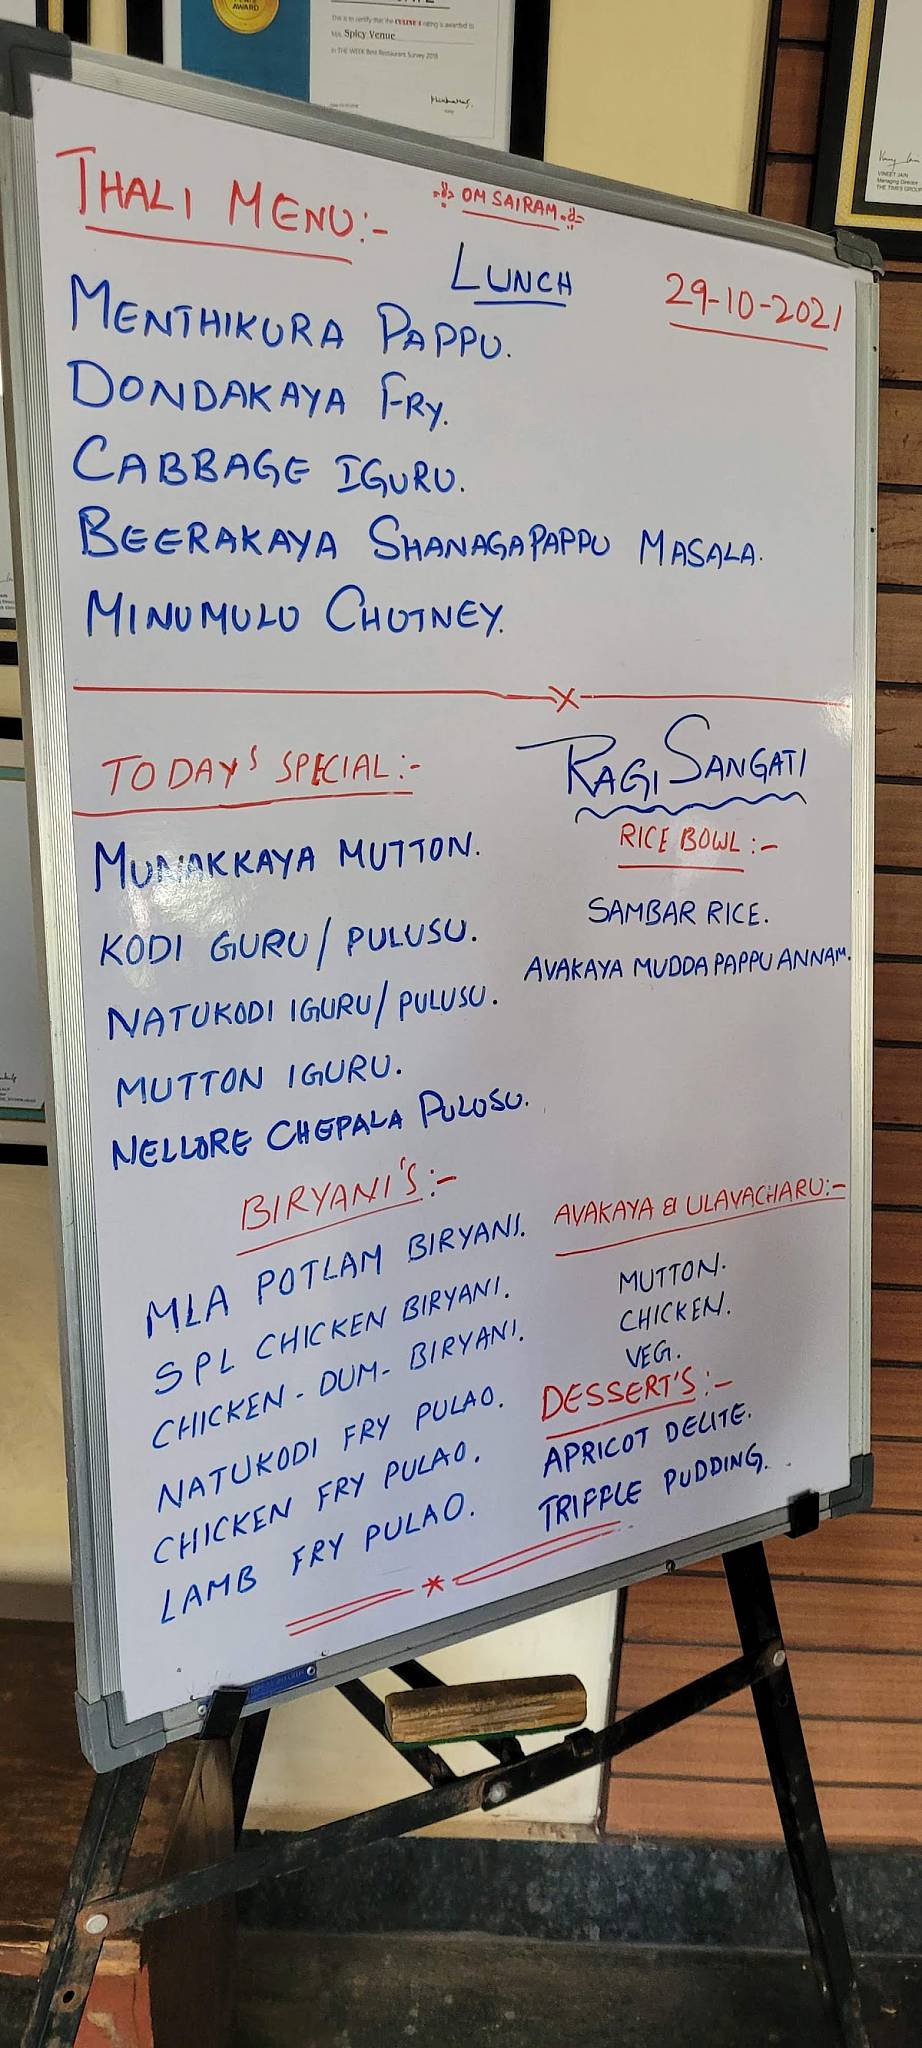 AWARD
This is to certify that the CULINE 4 rating is awarded to
M/s. Spicy Venue
in THE WEEK Best Restaurant Survey 2018
VINEET JAIN
Managing Director
THE TIMES GROUP
OM SAIRAM.
THALI MENU:-
LUNCH
29-10-2021
MENTHIKURA PAPPU.
DONDAKAYA FRY.
CABBAGE IGURU.
BEERAKAYA SHANAGAPAPPU MASALA.
MINUMULU CHUTNEY.
X
TODAY'S SPECIAL:-
MUNAKKAYA MUTTON.
KODI GURU/PULUSU.
NATUKODI IGURU/PULUSU.
MUTTON IGURU.
NELLORE CHEPALA PULUSU.
RAGI SANGATI
RICE BOWL:-
SAMBAR RICE.
AVAKAYA MUDDA PAPPU ANNAM.
BIRYANI'S:-
MLA POTLAM BIRYANI.
SPL CHICKEN BIRYANI.
CHICKEN-DUM-BIRYANI.
NATUKODI FRY PULAO.
CHICKEN FRY PULAO.
LAMB FRY PULAO.
AVAKAYA & ULAVACHARU:-
MUTTON.
CHICKEN.
VEG.
DESSERT'S:-
APRICOT DELITE.
TRIFFLE PUDDING.